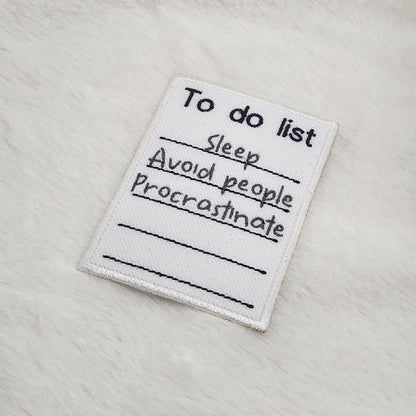 To do list
Sleep
Avoid people
Procrastinate